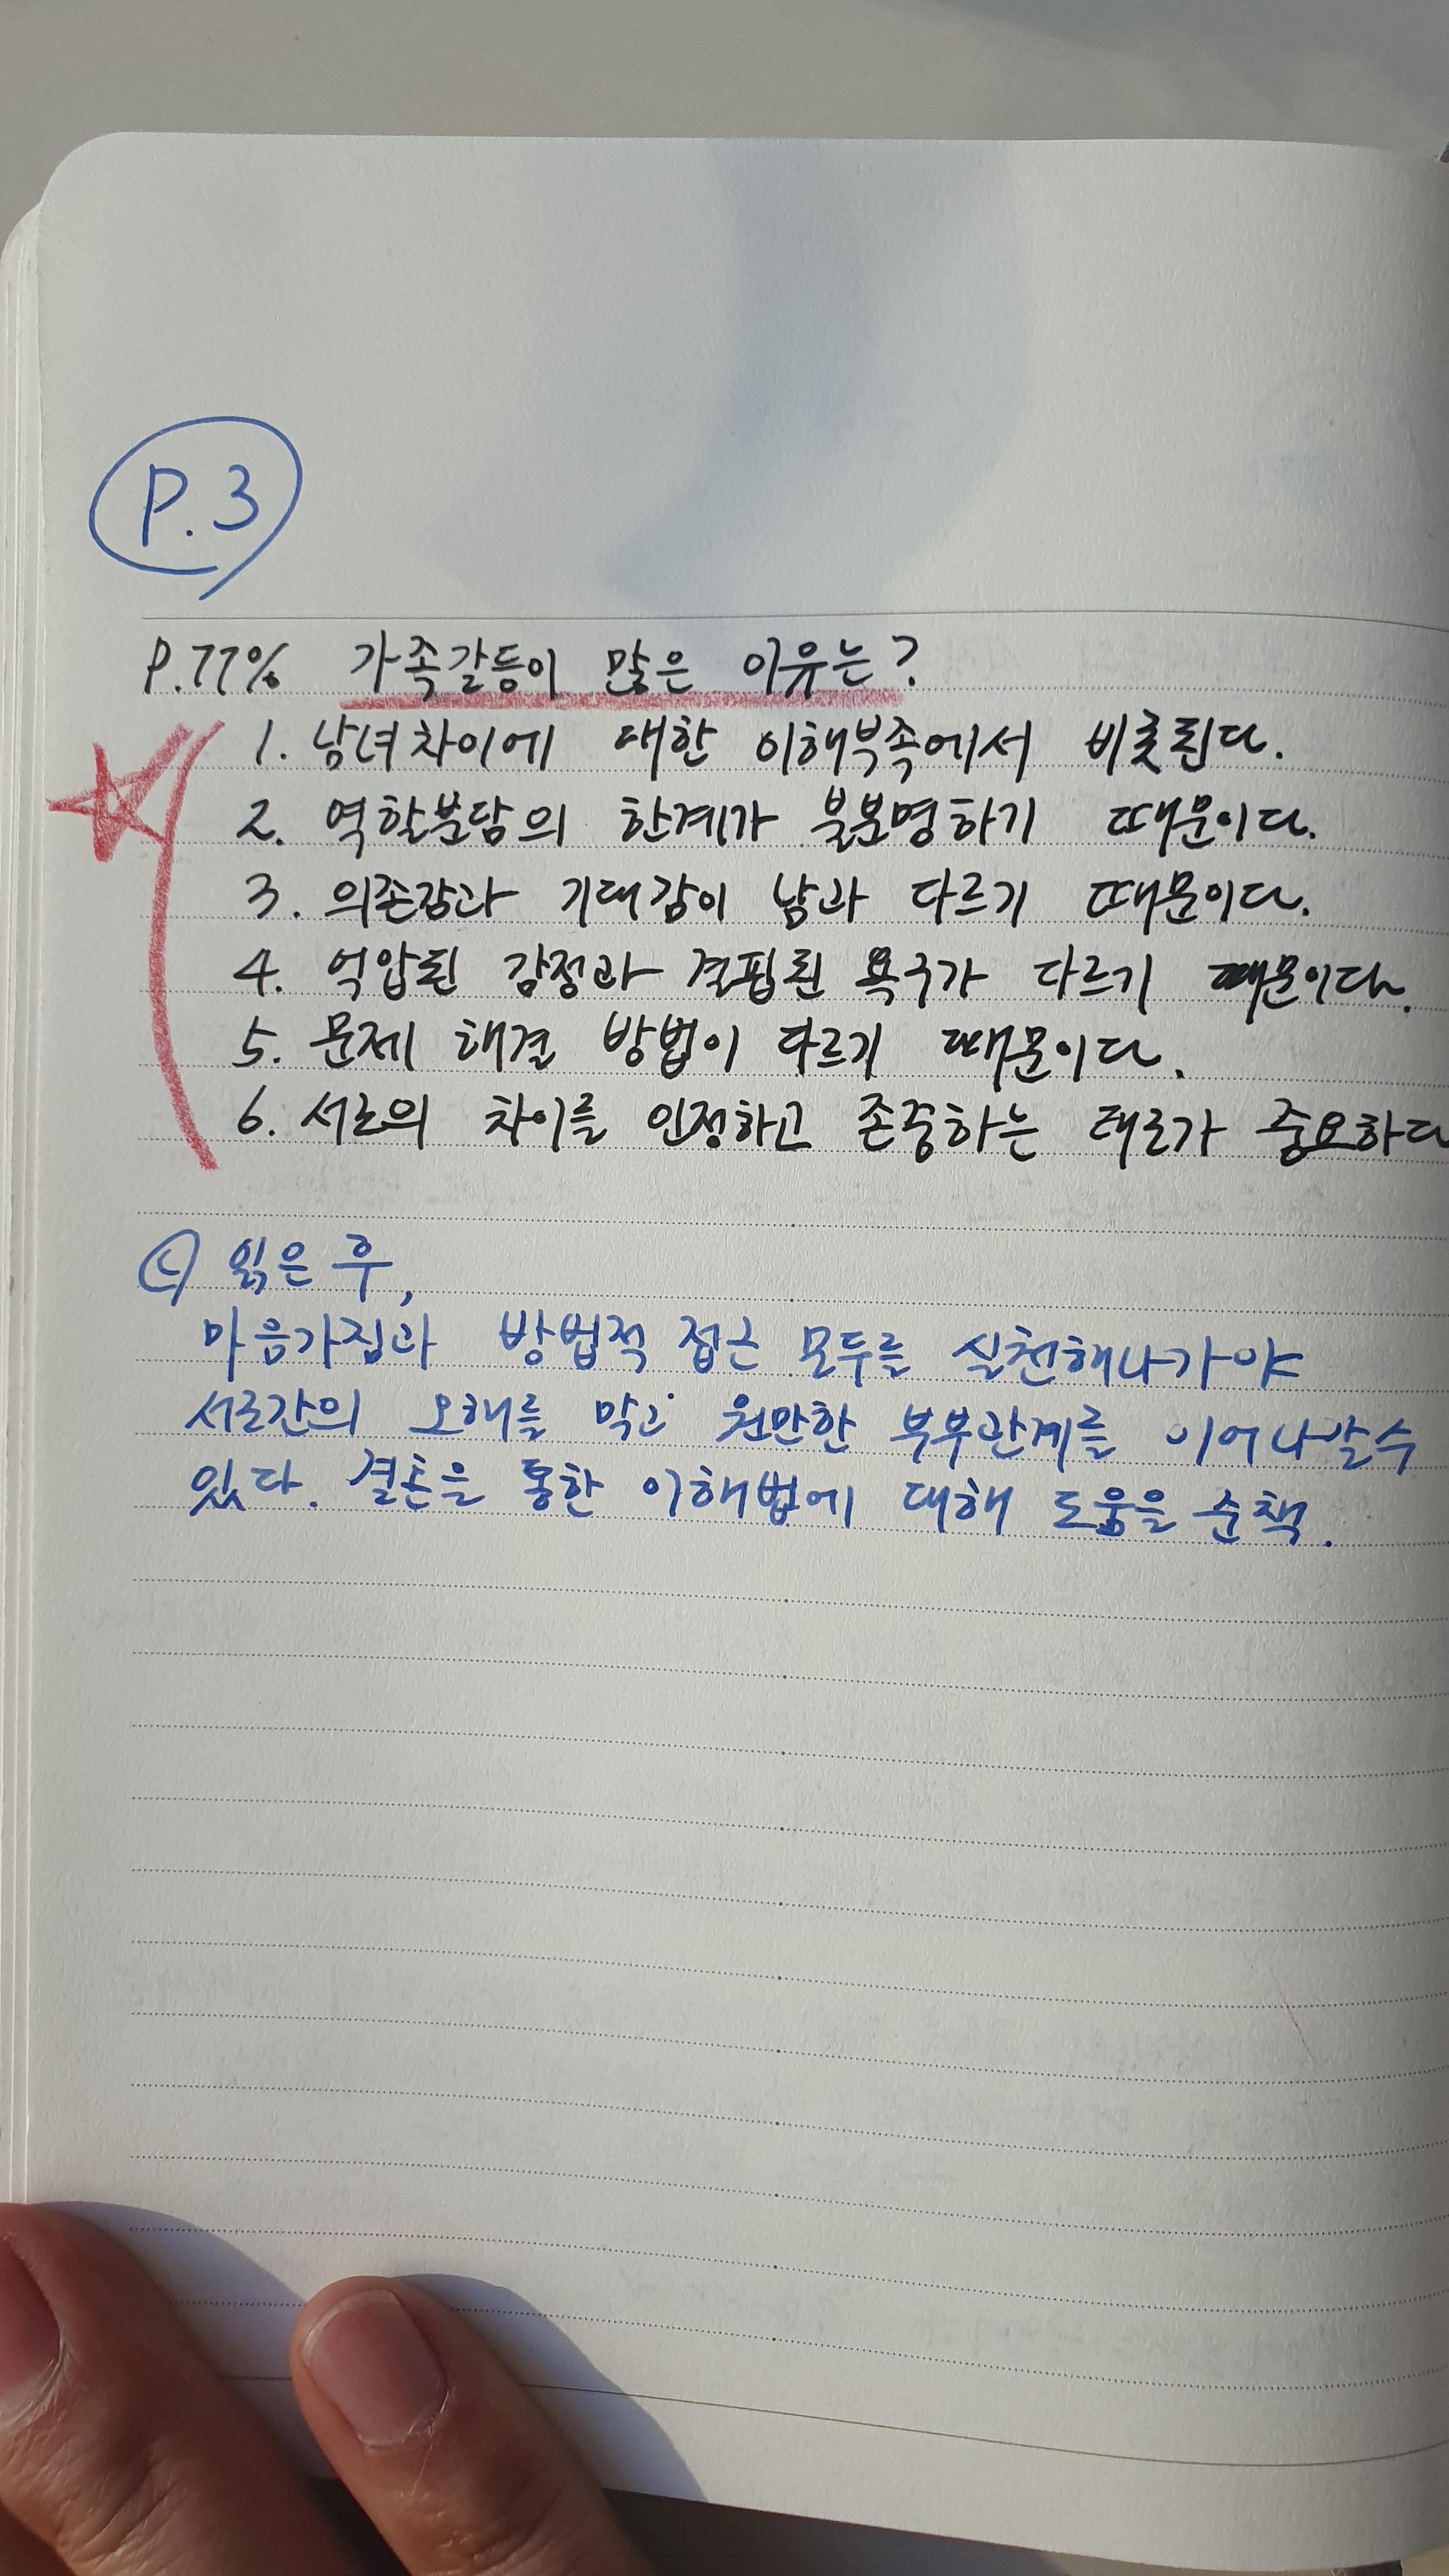 P.3
P.77% 가족갈등이 많은 이유는?
1. 남녀차이에 대한 이해부족에서 비롯된다.
2. 역할분담의 한계가 불분명하기 때문이다.
3. 의존감과 기대감이 남과 다르기 때문이다.
4. 억압된 감정과 결핍된 욕구가 다르기 때문이다.
5. 문제 해결 방법이 다르기 때문이다.
6. 서로의 차이를 인정하고 존중하는 태로가 중요하다
읽은 후,
마음가짐과 방법적 접근 모두를 실천해나가야
서로간의 오해를 막고 원만한 부부관계를 이어나갈수
있다. 결혼을 통한 이해법에 대해 도움을 준책.